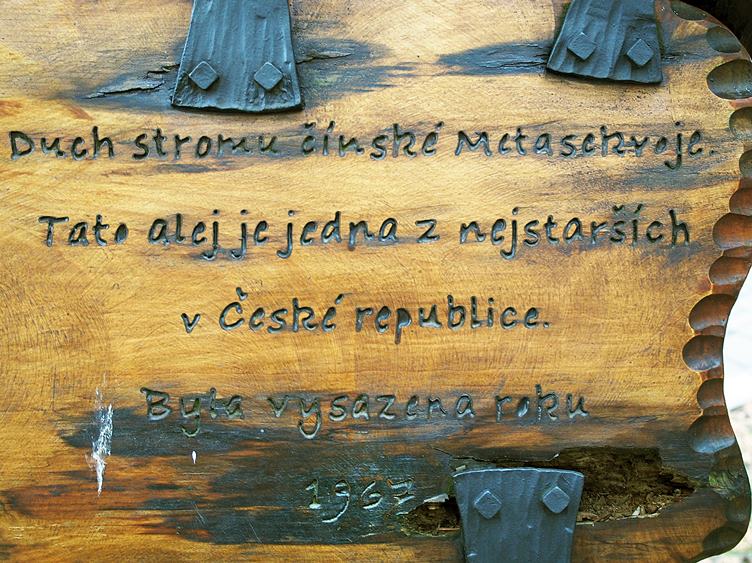 Duch stromu čínské Metasekvoje.
Tato alej je jedna z nejstarších
v České republice.
Byla vysazena roku
1967